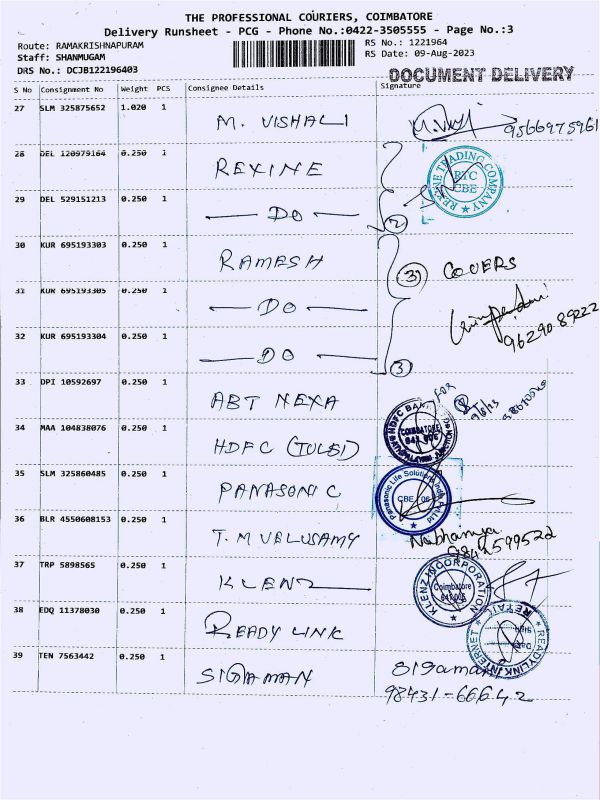 THE PROFESSIONAL COURIERS, COIMBATORE
Delivery Runsheet - PCG - Phone No.:0422-3505555 - Page No.:3
Route: RAMAKRISHNAPURAM
RS No.: 1221964
Staff: SHANMUGAM
RS Date: 09-Aug-2023
DRS No.: DCJB122196403
DOCUMENT DELIVERY
S No Consignment No Weight PCS Consignee Details Signature
27 SLM 325875652 1.020 1 M. VISHALI
28 DEL 120979164 0.250 1 REXINE
REXINE TRADING COMPANY
RTC
CBE
29 DEL 529151213 0.250 1 — DO —
2
30 KUR 695193303 0.250 1 RAMESH
3 COVERS
31 KUR 695193305 0.250 1 — DO —
96290 89222
32 KUR 695193304 0.250 1 — DO —
3
33 DPI 10592697 0.250 1 ABT NEXA
FOR
9/8/23
34 MAA 104838076 0.250 1 HDFC (TULSI)
HDFC BANK
COIMBATORE
641 006
35 SLM 325860485 0.250 1 PANASONIC
Panasonic Life Solutions India Pvt Ltd
CBE 06
36 BLR 4550608153 0.250 1 T. M VELUSAMY
9842599522
37 TRP 5898565 1 KLENZ
KLENZ INCORPORATION
Coimbatore
641 006
38 EDQ 11378030 0.250 1 READY LINK
READYLINK INTERNET
RETAIL
39 TEN 7563442 0.250 1 SIGAMAN
98431-66642